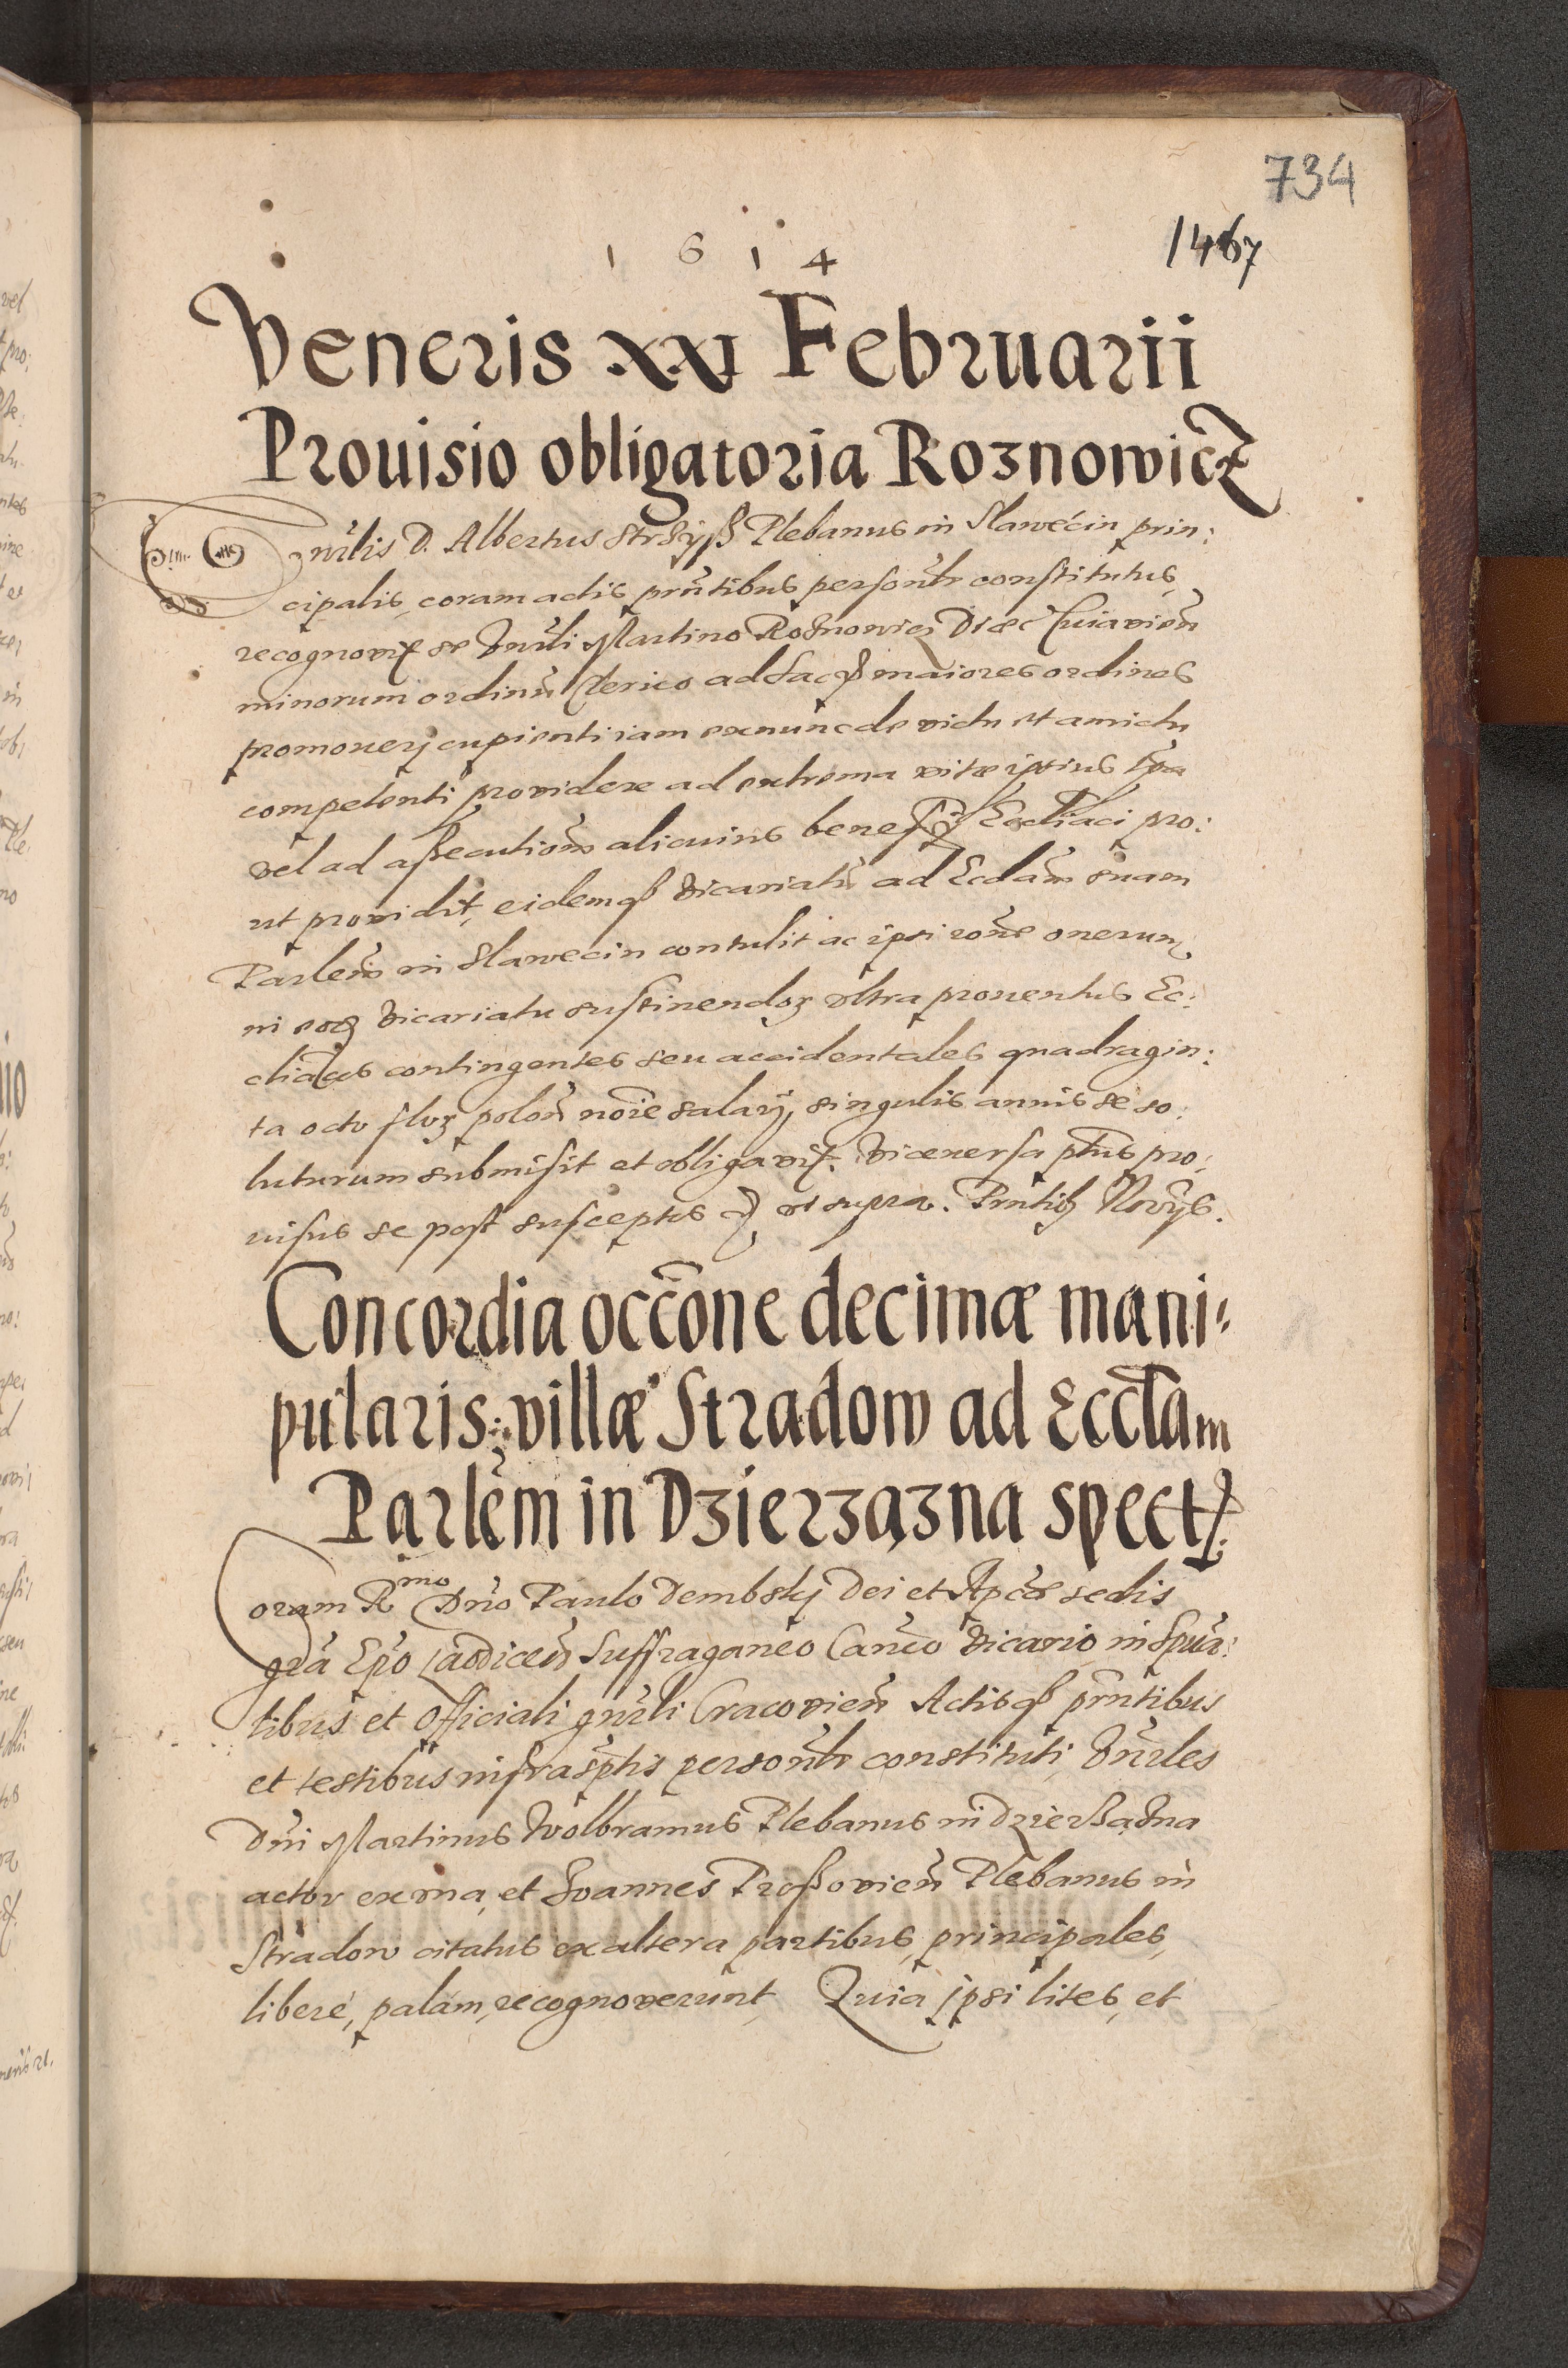 734
1467
1 6 1 4
Veneris xxi Februarii
Prouisio obligatoria Roznowicz
nr̃lis D. Albertus Plebanus in Slawécin prin:
cipalis, coram actis pr̃ntibus personlr̃ constitutus,
recognovit se Vnr̃li Martino Roznowicz Diæc Cuiavien̄
minorum ordinū Clerico ad Sacꝗ maiores ordines
promouerj cupienti iam exnunc de victu et amictu
competenti providere ad extrema vitæ ipsius
vel ad aßecutionē alicuius Eccl̄iaci pro:
ut providit, eidemqꝫ vicariatū ad Eccl̄am suam
Parlem̄ in Slawecin contulit ac ipsi rōne onerum
in vicariatu sustinendoꝝ vltra prouentus Ec:
cliāces contingentes seu accidentales quadragin:
ta octo floꝝ polon̄ noīe salarij, singulis annis se so:
luturum submisit et obligavit. Viceuersa pro:
uisus se post susceptos ut supra. Pn̄tibꝫ
Concordia occōne decimæ mani:
pularis: villæ Stradow ad Eccl̄am
Parlēm in Dzierzązna spect.
oram Rmo Dn̄o Paulo Dembskj Dei et Apcæ sedis
gr̄a Ep̄o Laodicen̄ Suffraganeo Can̄co Vicario in Spūa:
libus et Officiali gnr̄li Cracovien̄ Actisqꝫ pr̄ntibus
et testibus infrascptis personlr̄ constituti, Vnr̄les
Dn̄i Martinus Wolbramus Plebanus in Dzierzązna
actor ex vna, et Joannes Proßovien̄ Plebanus in
Stradow citatus ex altera partibus, principales,
liberé, palám, recognoverunt, Quia ipsi lites, et